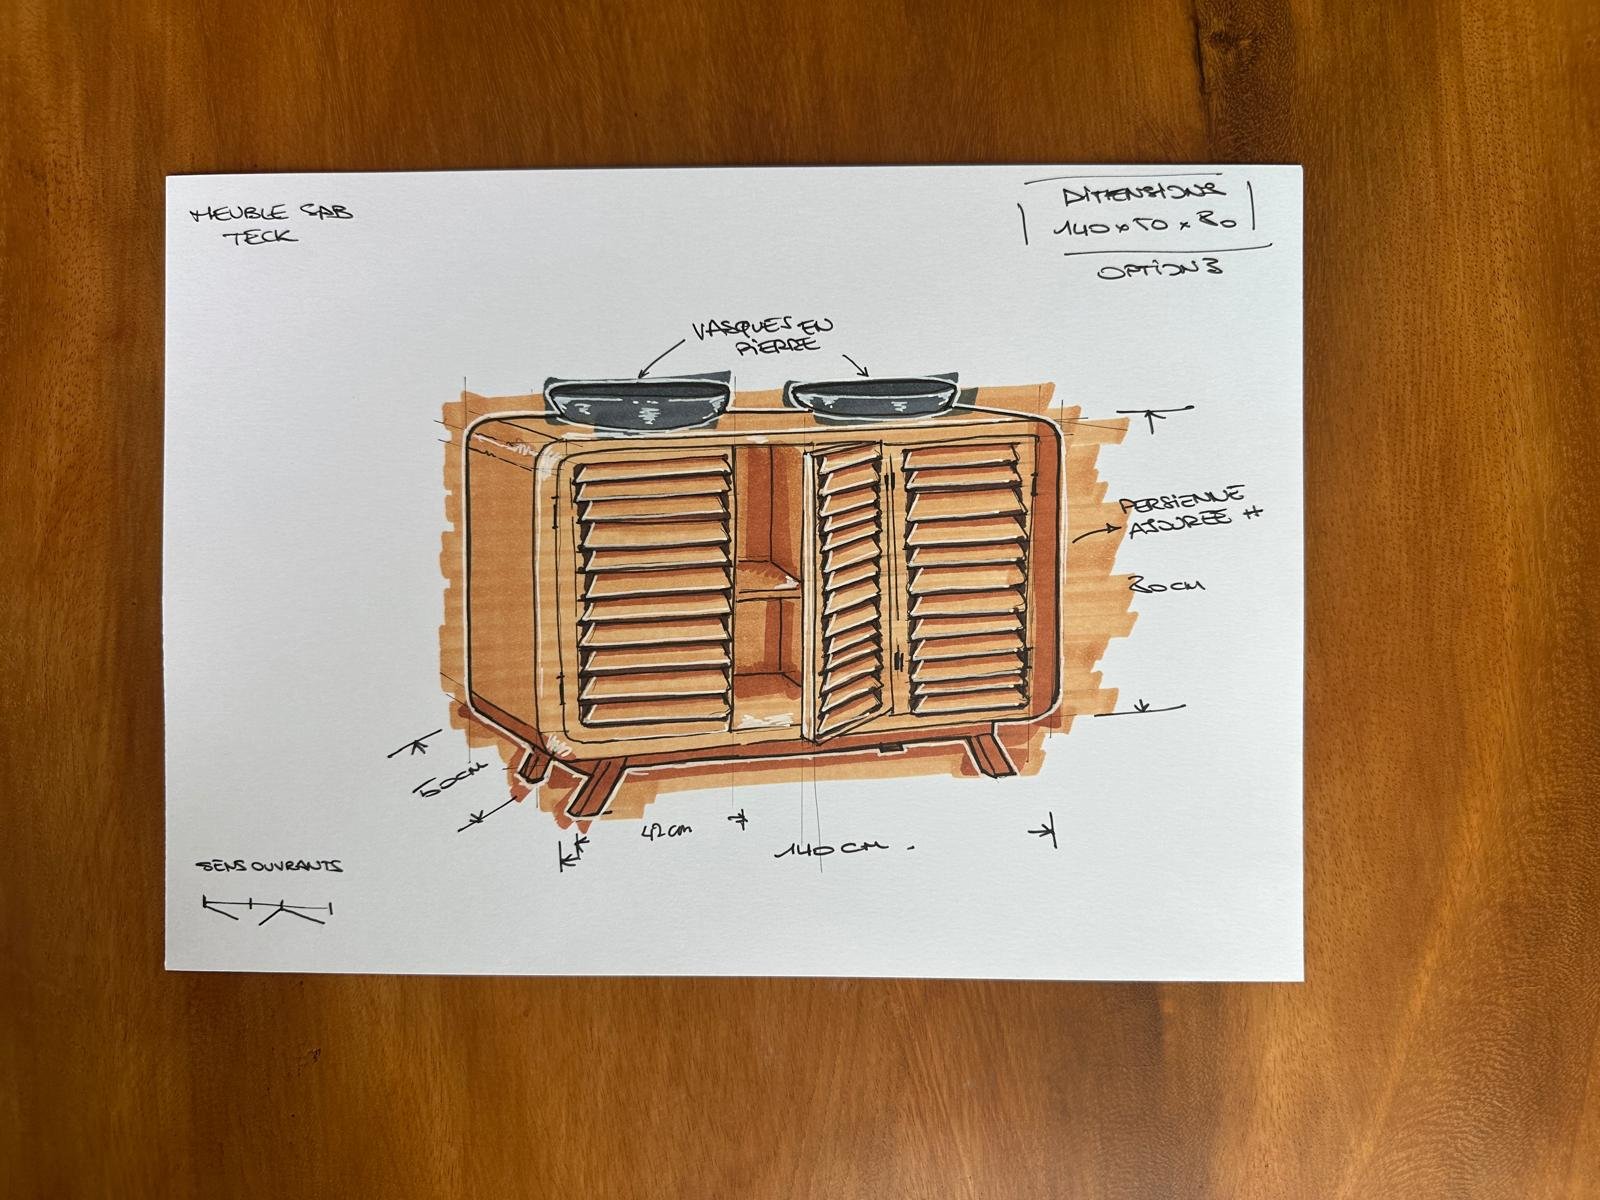 MEUBLE SAB
TECK
DIMENSIONS
140 x 50 x 80
OPTION 3
VASQUES EN
PIERRE
PERSIENNE
AJOURÉE
80 cm
50 cm
42 cm
140 CM.
SENS OUVRANTS